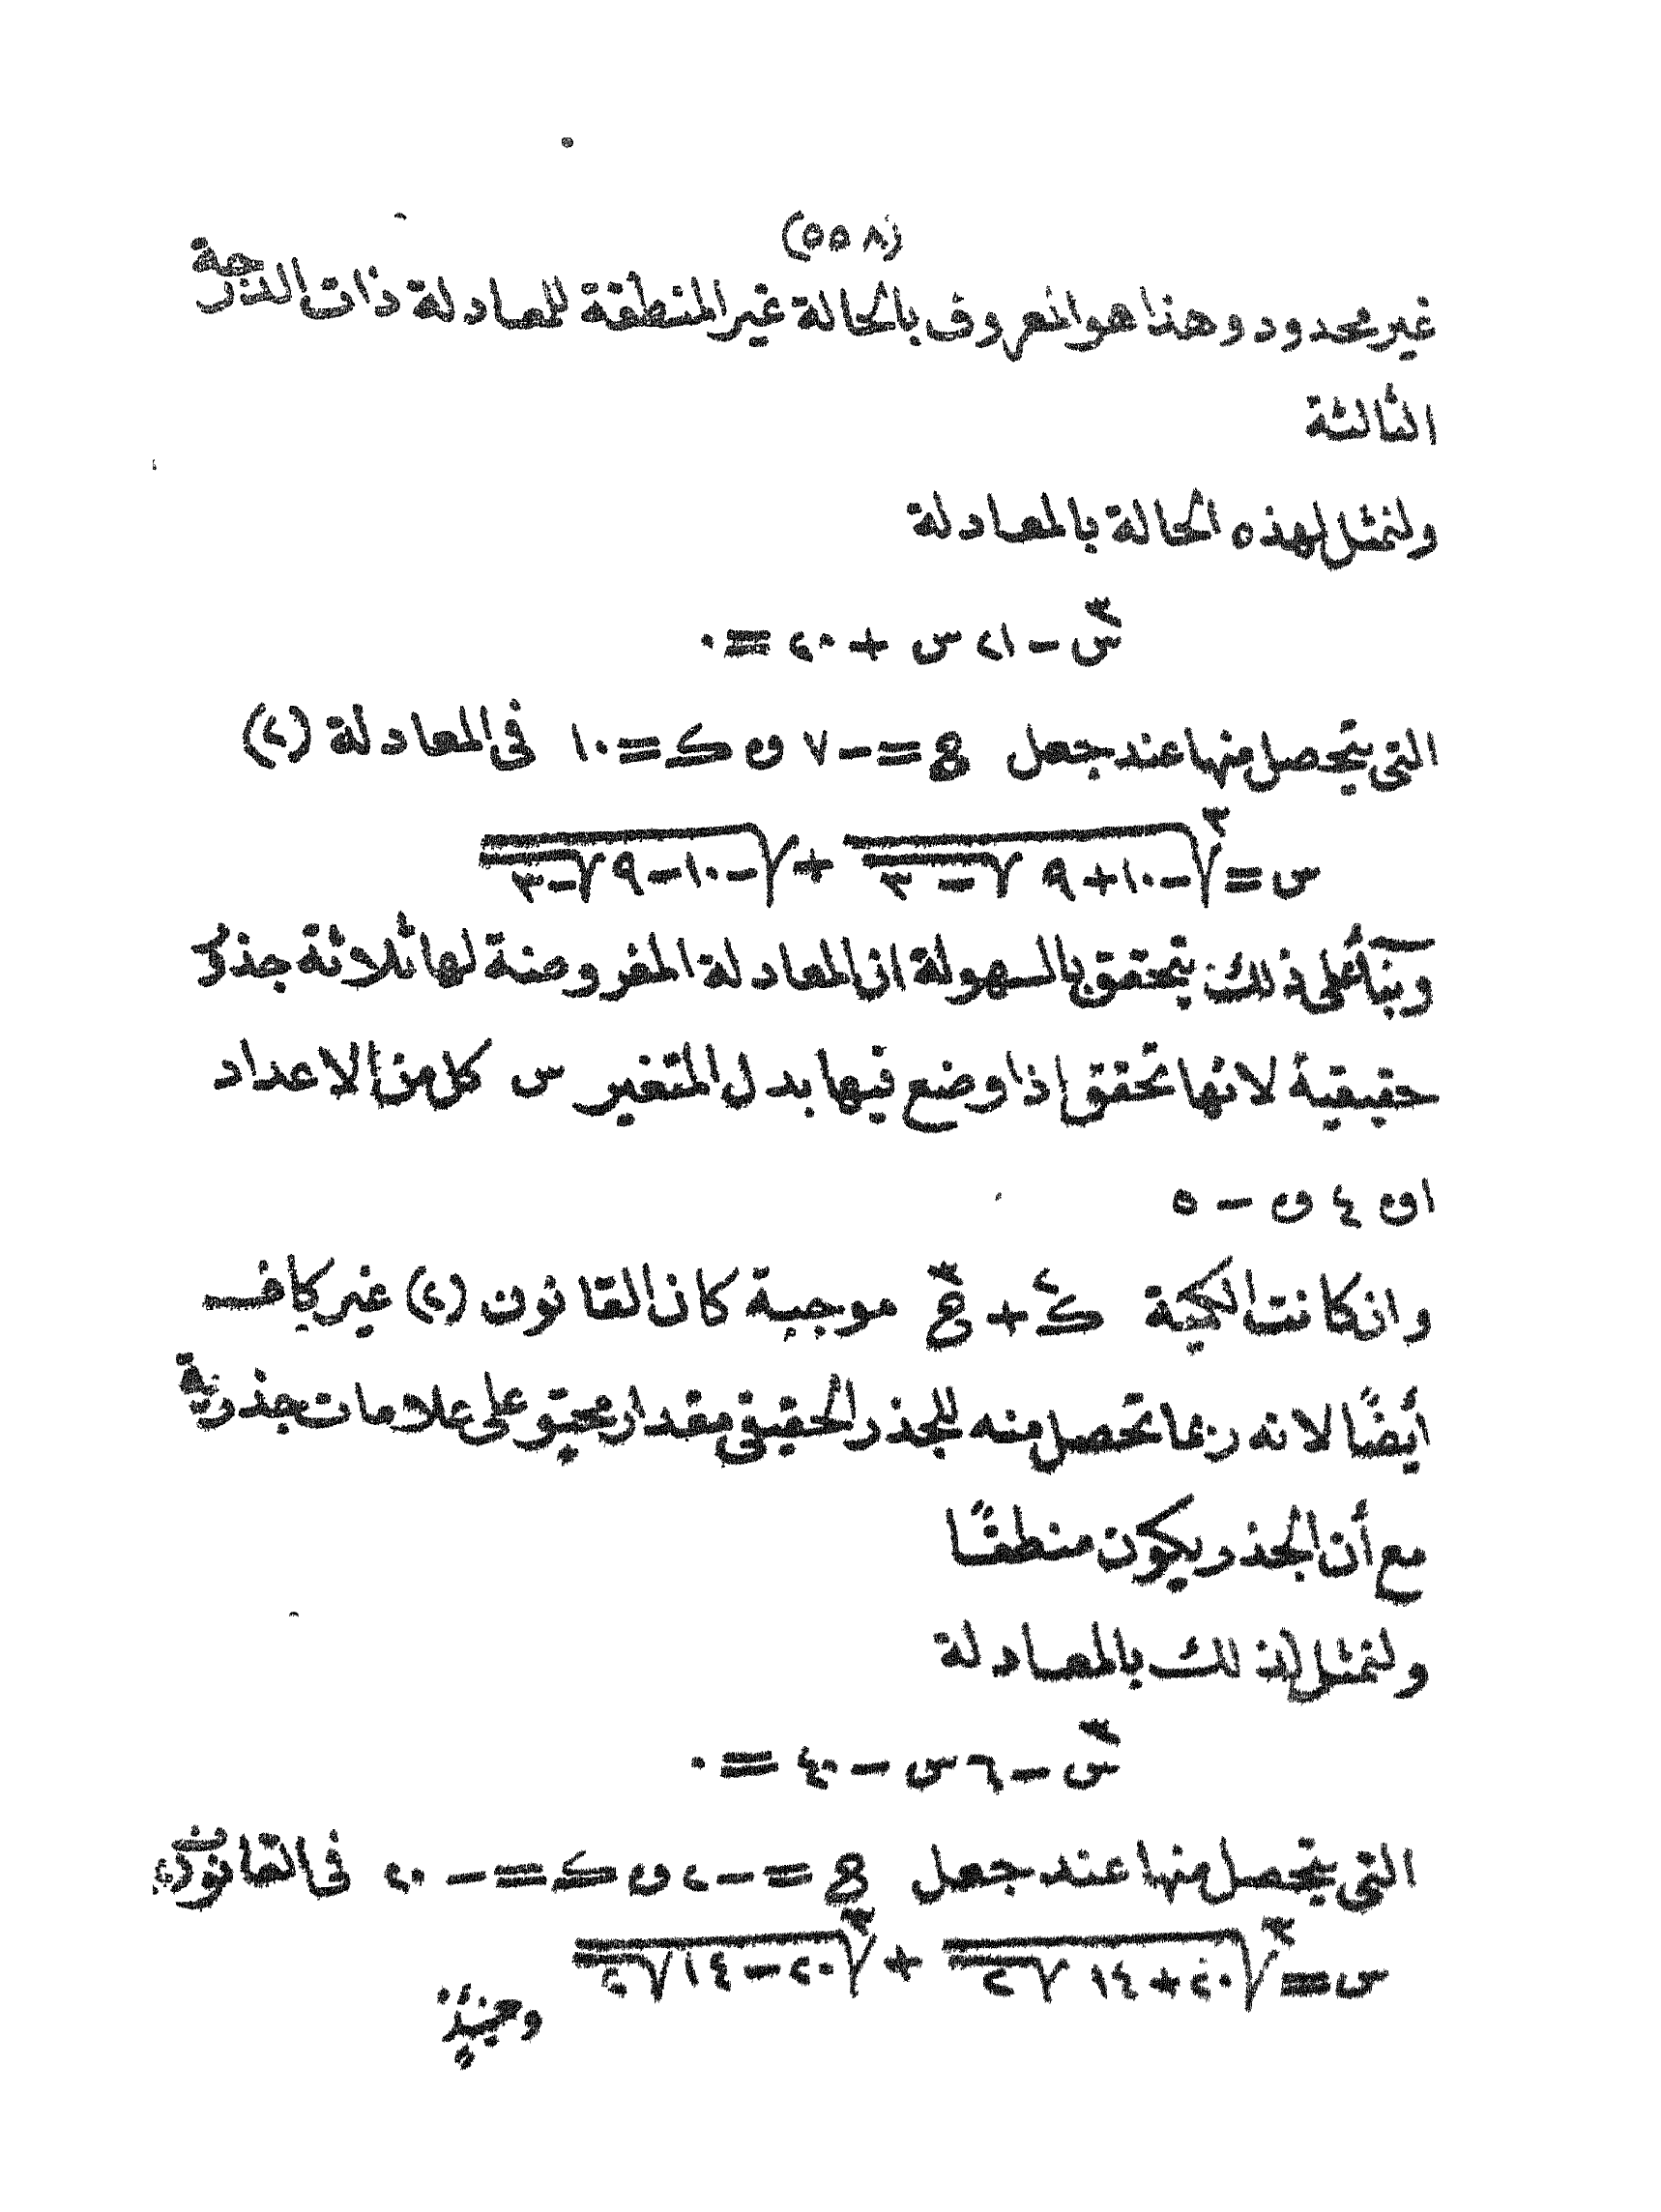 (٥٥٨)
غير محدود وهذا هو المعروف بالحالة غير المنطقة للمعادلة ذات الدرجة
الثالثة
ولنمثل لهذه الحالة بالمعادلة
س٣ - ٢١ س + ٢٠ = ٠
التى يتحصل منها عند جعل ع = - ٧ و ك = ١٠ فى المعادلة (٢)
س = ∛(-١٠ + ٩ √-٣) + √(-١٠ - ٩ √-٣)
وبنآء على ذلك يتحقق بالسهولة ان المعادلة المفروضة لها ثلاثة جذور
حقيقية لانها تحقق اذا وضع فيها بدل المتغير س كل من الاعداد
١ و ٤ و - ٥
وان كانت الكمية ك٢ + ع٣ موجبة كان القانون (٢) غير كاف
أيضًا لانه ربما تحصل منه للجذر الحقيقى مقدار محتو على علامات جذرية
مع أن الجذر يكون منطقًا
ولنمثل لذلك بالمعادلة
س٣ - ٦ س - ٤٠ = ٠
التى يتحصل منها عند جعل ع = - ٢ و ك = - ٢٠ فى القانون (٢)
س = ∛(٢٠ + ١٤ √٢) + ∛(٢٠ - ١٤ √٢)
وحينئذٍ